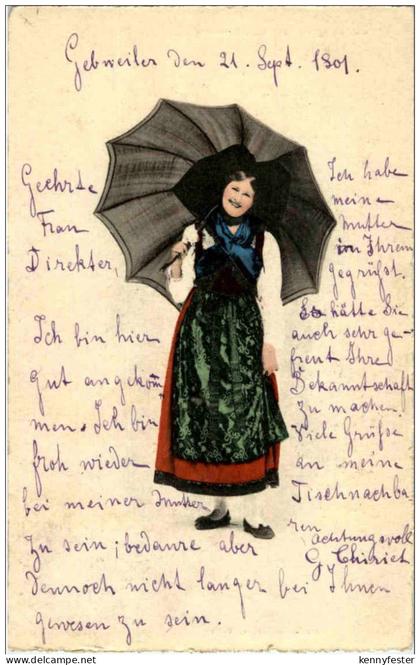 Gebweiler den 21. Sept. 1901.
Geehrte
Frau
Direkter,
Ich bin hier
gut angekom
men. Ich bin
froh wieder
bei meiner Mutter
zu sein; bedaure aber
dennoch nicht langer bei Ihnen
gewesen zu sein.
Ich habe
meine
Mutter
von Ihnen
gegrüßt.
Es hätte Sie
auch sehr ge-
freut Ihre
Bekanntschaft
zu machen.
Viele Grüße
an meine
Tischnachba
ren
achtungsvoll
G. Chiriet
www.delcampe.net
kennyfester